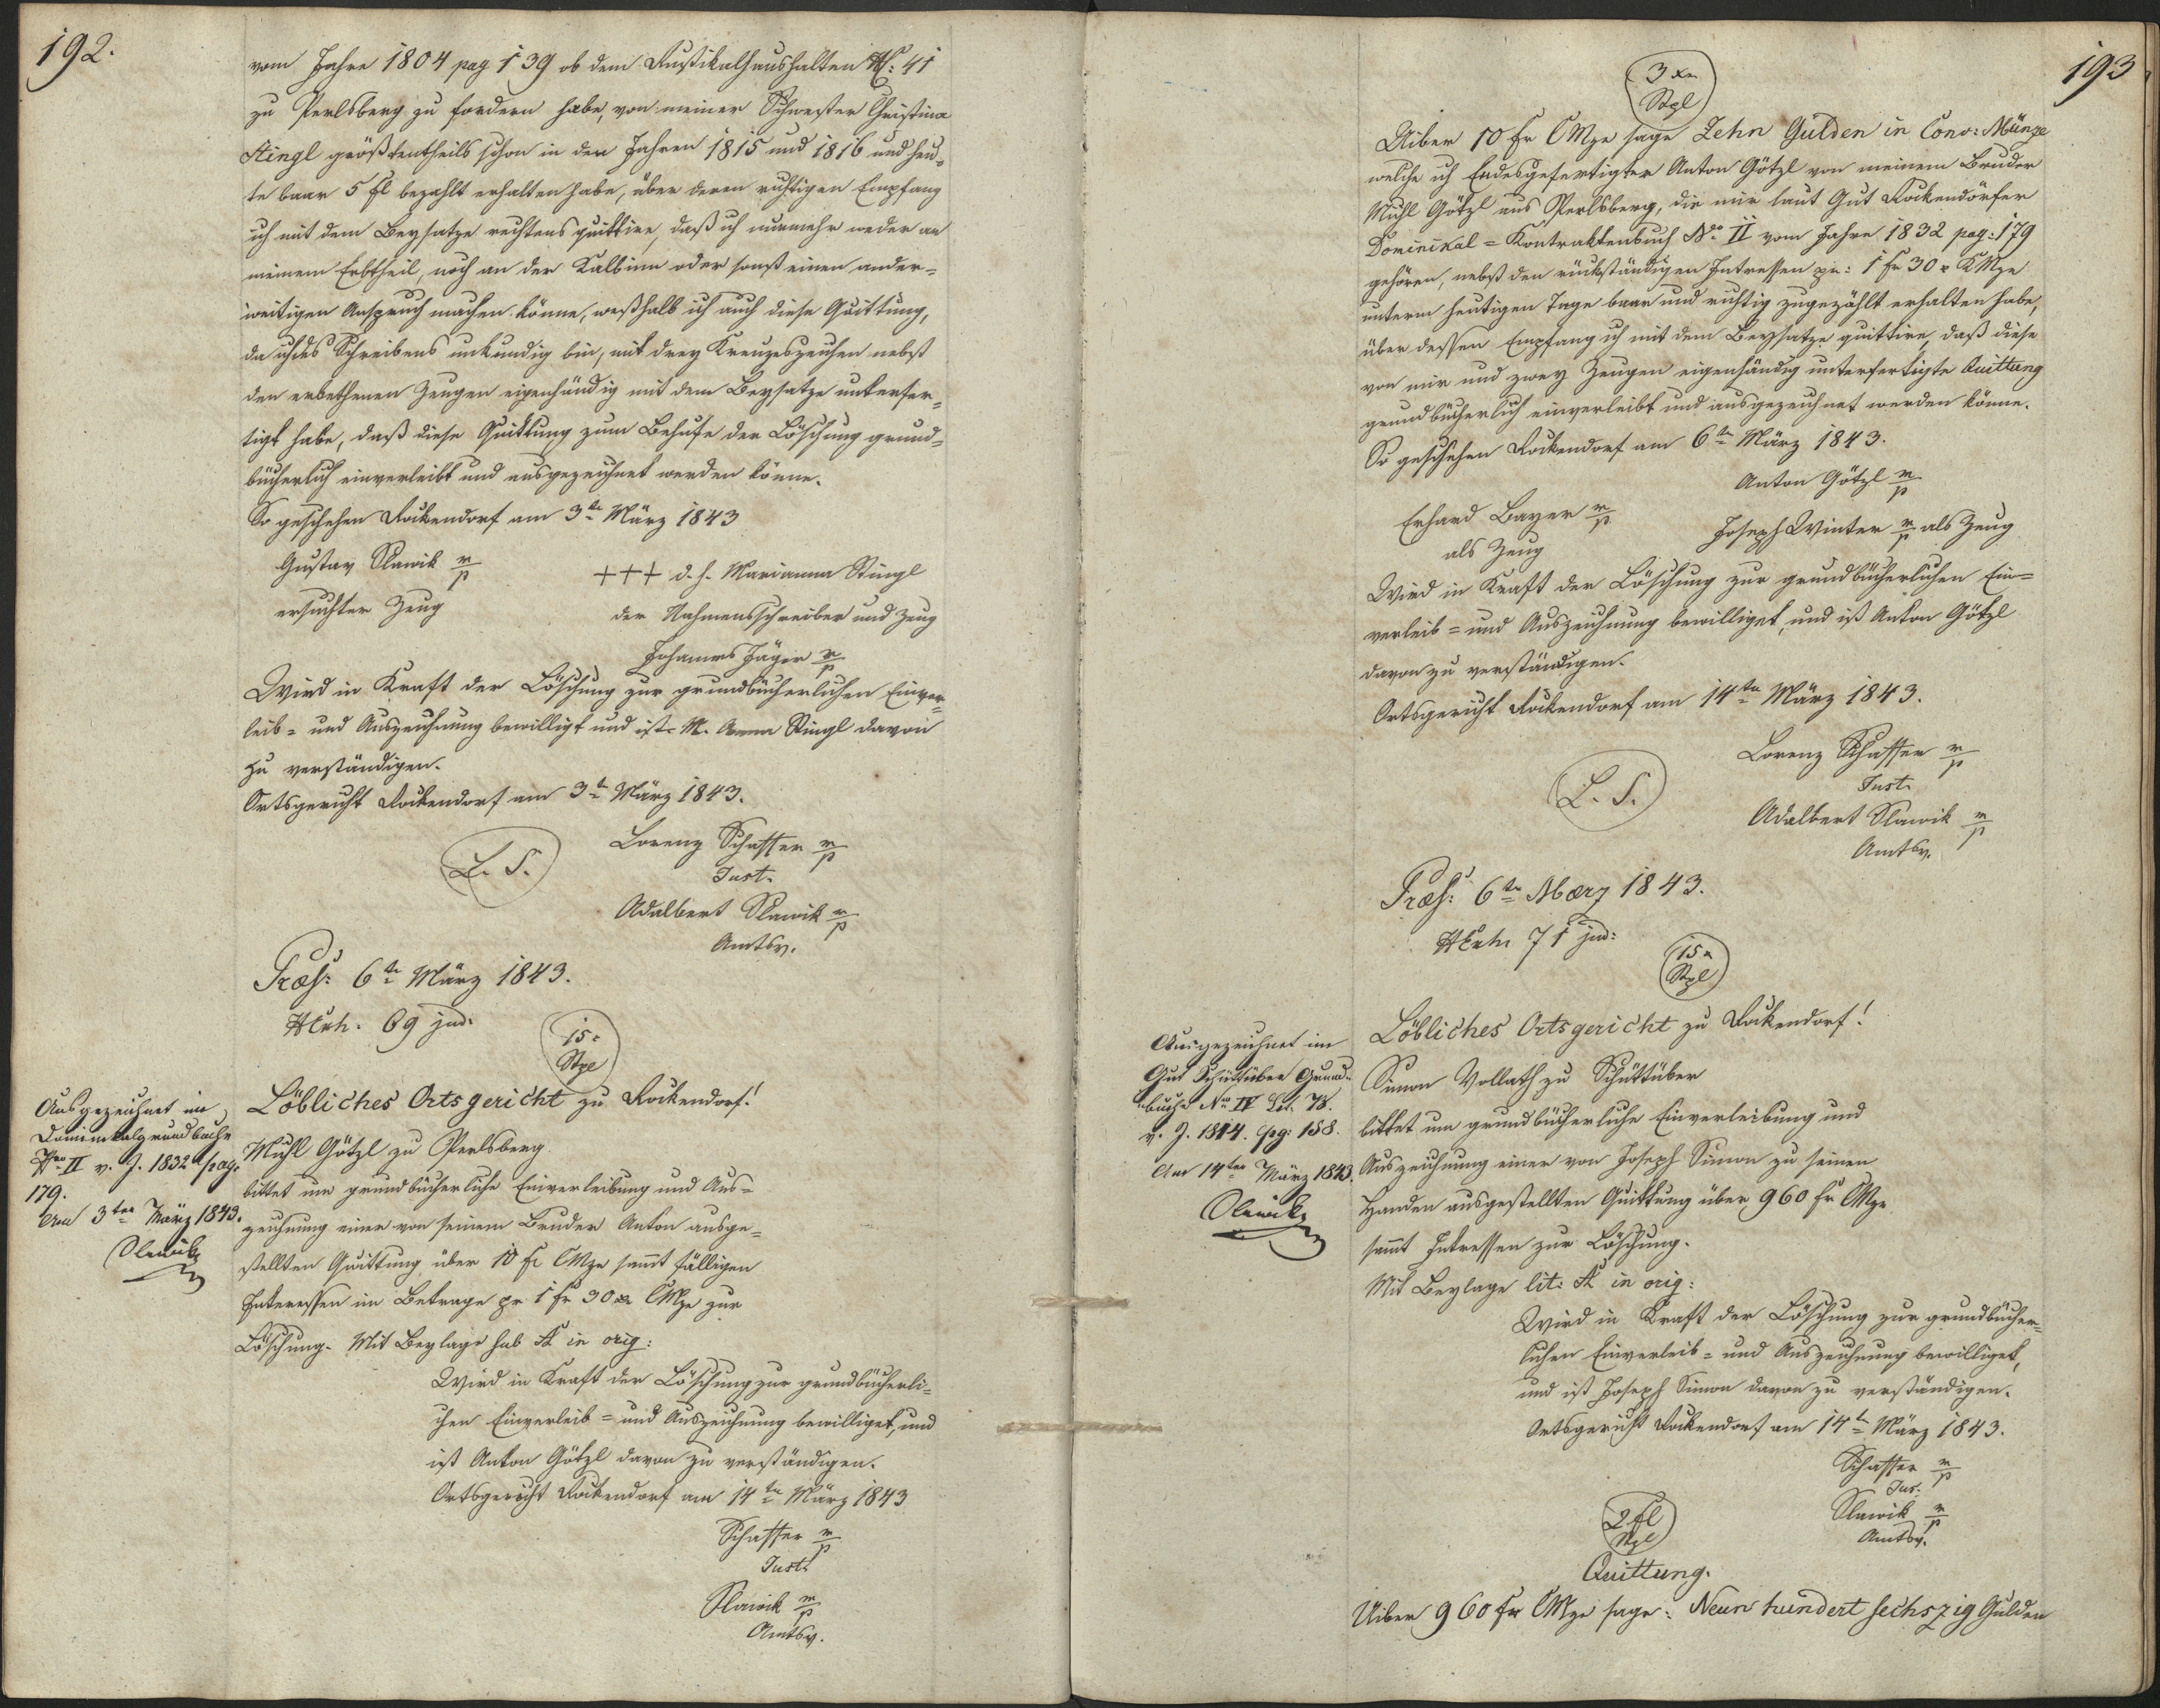 192.
vom Jahre 1804 pag 139 ob dem Rustikalhaushalten N: 41
zu Perlsberg zu fordern habe, von meiner Schwester Christina
Stingl größtentheils schon in den Jahren 1815 und 1816 und heu-
te baar 5 fl bezahlt erhalten habe, über deren richtigen Empfang
ich mit dem Beysatze rechtens quittire, daß ich nunmehr weder an
meinem Erbtheil, noch an der Kalbinn oder sonst einen ander-
weitigen Anspruch machen könne, weßhalb ich auch diese Quittung,
da ich des Schreibens unkundig bin, mit drey Kreuzeszeichen nebst
den erbethenen Zeugen eigenhändig mit dem Beysatze unterfer-
tigt habe, daß diese Quittung zum Behufe der Löschung grund-
bücherlich einverleibt und ausgezeichnet werden könne.
So geschehen Rockendorf am 3te März 1843
Gustav Slawik m/p
ersuchter Zeug
+++ d. h. Marianna Stingl
der Nahmensschreiber und Zeug
Johannes Jäger m/p
Wird in Kraft der Löschung zur grundbücherlichen Einver-
leib- und Auszeichnung bewilligt und ist M. Anna Stingl davon
zu verständigen.
Ortsgericht Rockendorf am 3t März 1843.
L. S.
Lorenz Schaffer m/p
Just.
Adalbert Slawik m/p
Amtsv.
Præs: 6te März 1843.
NExh. 69 jud:
15x
Stpl
Ausgezeichnet im
Dominikalgrundbuche
Nro II v. J. 1832 pag.
179.
Am 3ten März 1843.
Slawik
Löbliches Ortsgericht zu Rockendorf!
Michl Götzl zu Perlsberg
bittet um grundbücherliche Einverleibung und Aus-
zeichnung einer von seinem Bruder Anton ausge-
stellten Quittung über 10 fr CMze sammt fälligen
Interessen im Betrage pr 1 fr 30 xr CMze zur
Löschung. Mit Beylage sub A in orig:
Wird in Kraft der Löschung zur grundbücherli-
chen Einverleib- und Auszeichnung bewilliget, und
ist Anton Götzl davon zu verständigen.
Ortsgericht Rockendorf am 14te März 1843
Schaffer m/p
Just
Slawik m/p
Amtsv.
193
3 xr
Stpl
Uiber 10 fr CMze sage Zehn Gulden in Conv: Münze
welche ich Endesgefertigter Anton Götzl von meinem Bruder
Michl Götzl aus Perlsberg, die mir laut Gut Rockendörfer
Dominikal-Kontraktenbuch Nro II vom Jahre 1832 pag: 179
gehören, nebst den rückständigen Intressen pr: 1 fr 30 x KMze
unterm heutigen Tage baar und richtig zugezählt erhalten habe,
über dessen Empfang ich mit dem Beysatze quittire, daß diese
von mir und zwey Zeugen eigenhändig unterfertigte Quittung
grundbücherlich einverleibt und ausgezeichnet werden könne.
So geschehen Rockendorf am 6te März 1843.
Anton Götzl m/p
Erhard Bayer m/p
als Zeug
Joseph Winter m/p als Zeug
Wird in Kraft der Löschung zur grundbücherlichen Ein-
verleib- und Auszeichnung bewilliget, und ist Anton Götzl
davon zu verständigen.
Ortsgericht Rockendorf am 14te März 1843.
L. S.
Lorenz Schaffer m/p
Just.
Adalbert Slawik m/p
Amtsv.
Præs: 6te Maerz 1843.
NExh 71 jud:
15x
Stpl
Ausgezeichnet im
Gut Schüttüber Grund-
buche Nro IV Lit. 78.
v. J. 1814. pg: 158.
Am 14ten März 1843.
Slawik
Löbliches Ortsgericht zu Rockendorf!
Simon Vollath zu Schüttüber
bittet um grundbücherliche Einverleibung und
Auszeichnung einer von Joseph Simon zu seinen
Handen ausgestellten Quittung über 960 fr CMze
sammt Intressen zur Löschung.
Mit Beylage lit: A in orig:
Wird in Kraft der Löschung zur grundbücher-
lichen Einverleib- und Auszeichnung bewilliget,
und ist Joseph Simon davon zu verständigen.
Ortsgericht Rockendorf am 14te März 1843.
Schaffer m/p
Jus.
Slawik m/p
Amtsv.
2 fl
Stpl
Quittung.
Uiber 960 fr CMze sage: Neun hundert sechszig Gulden